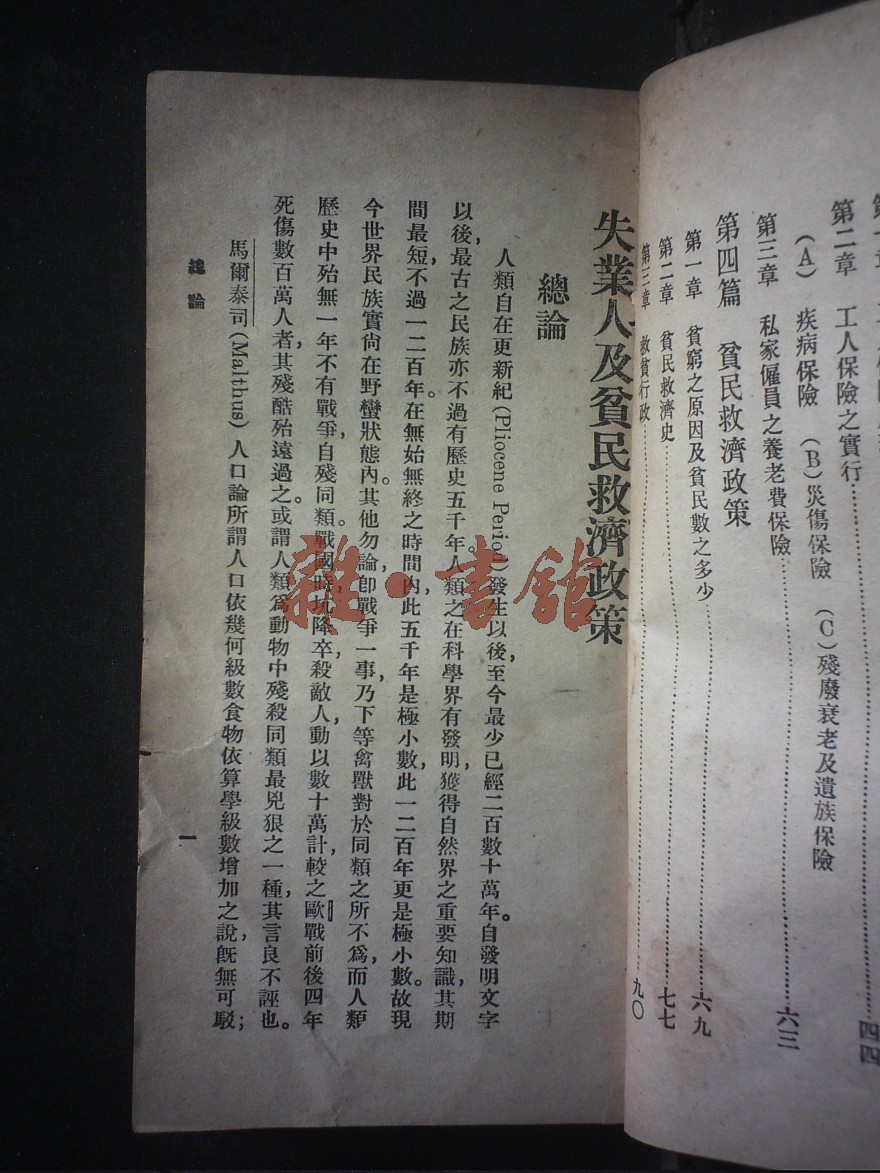 第二章　工人保險之實行⋯⋯四四
（A）疾病保險　（B）災傷保險　（C）殘廢衰老及遺族保險
第三章　私家僱員之養老費保險⋯⋯六三
第四篇　貧民救濟政策
第一章　貧窮之原因及貧民數之多少⋯⋯六九
第二章　貧民救濟史⋯⋯七七
第三章　救貧行政⋯⋯九〇
失業人及貧民救濟政策
總論
人類自在更新紀(Pliocene Period)發生以後，至今最少已經二百數十萬年。自發明文字
以後，最古之民族亦不過有歷史五千年。人類之在科學界有發明，獲得自然界之重要知識，其期
間最短不過一二百年。在無始無終之時間內，此五千年是極小數，此一二百年更是極小數。故現
今世界民族實尙在野蠻狀態內。其他勿論，卽戰爭一事，乃下等禽獸對於同類之所不爲，而人類
歷史中殆無一年不有戰爭，自殘同類。戰國時，坑降卒，殺敵人，動以數十萬計，較之歐戰前後四年
死傷數百萬人者，其殘酷殆遠過之。或謂人類爲動物中殘殺同類最兇狠之一種，其言良不誣也。
馬爾泰司(Malthus)人口論所謂人口依幾何級數食物依算學級數增加之說，旣無可駁；
總論
一
雜·書館